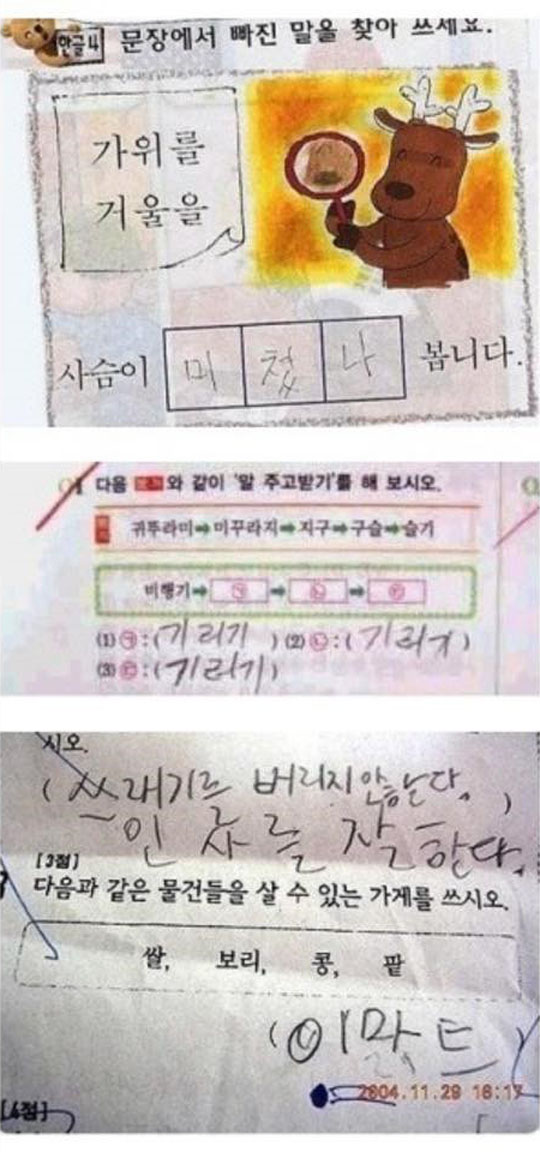 한글4 문장에서 빠진 말을 찾아 쓰세요.
가위를
거울을
사슴이 미 쳤 나 봅니다.
다음 보기와 같이 '말 주고받기'를 해 보시오.
보기 귀뚜라미➡미꾸라지➡지구➡구슬➡슬기
비행기➡㉠➡㉡➡㉢
(1) ㉠ : (기러기) (2) ㉡ : (기러기)
(3) ㉢ : (기러기)
시오.
(쓰래기를 버리지 안는다.)
인사를 잘 한다.
[3점]
다음과 같은 물건들을 살 수 있는 가게를 쓰시오.
쌀, 보리, 콩, 팥
(이마트)
2004.11.29 16:17
[4점]